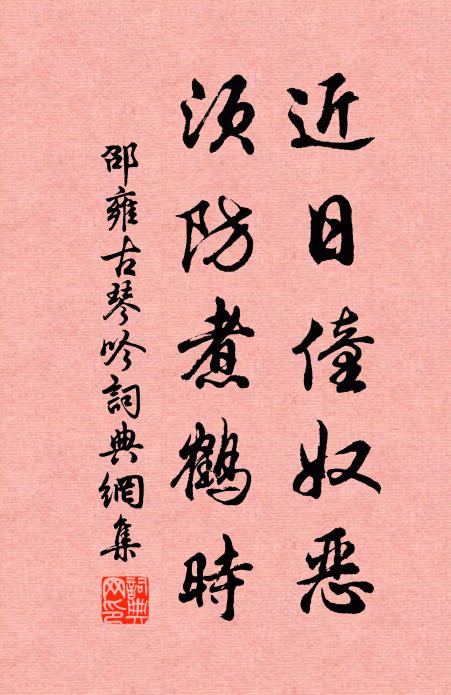 近日僮奴恶
须防煮鶴時
邵雍古琴吟詞典網集
詞典网印